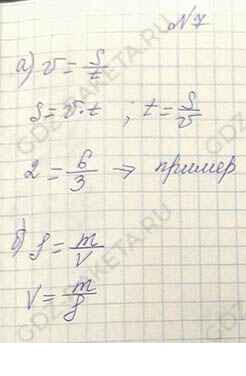 №7
а) v = S/t
S = v·t ; t = S/v
2 = 6/3 → пример
б) ρ = m/V
V = m/ρ
GDZRAKETA.RU